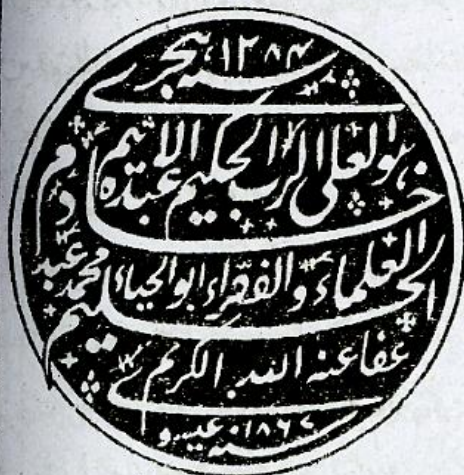 سنہ ۱۲۸۴ ہجری
ہو العلی الرب الحکیم عبدہ الاثیم
خادم
العلماء و الفقراء ابو الحیاء
محمد عبد الحلیم
عفا عنہ اللہ الکریم
سنہ ۱۸۶۷ عیسوی